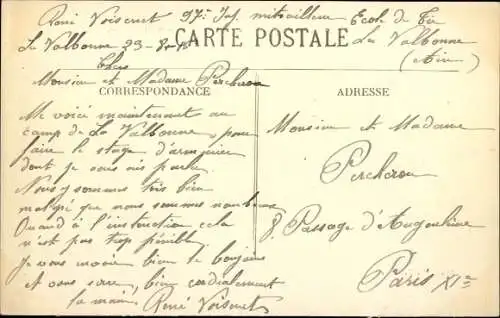 René Voisenet 97e Inf. mitrailleur Ecole de Tir
La Valbonne 23-8-15 La Valbonne
(Ain)
CARTE POSTALE
CORRESPONDANCE
ADRESSE
Chers
Monsieur et Madame Percheron
Me voici maintenant au
camp de La Valbonne, pour
faire le stage d'armurier
dont je vous ai parlé
Nous y sommes très bien
malgré que nous sommes nombreux
Quand à l'instruction cela
n'est pas trop pénible.
Je vous envoie bien le bonjour
et vous serre, bien cordialement
la main René Voisenet
Monsieur et Madame
Percheron
8, Passage d'Angoulême
Paris XIe